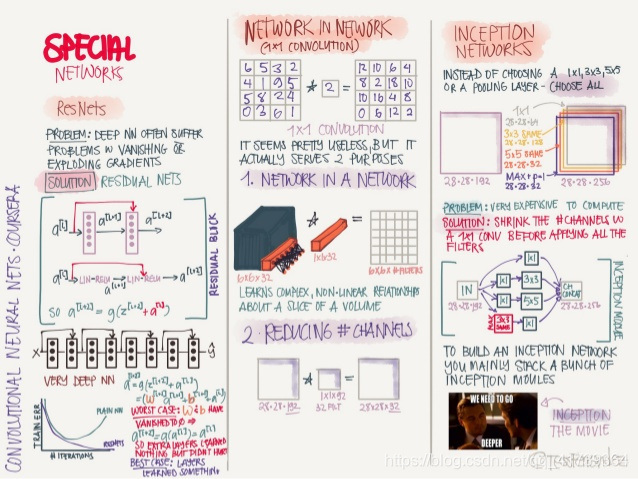 CONVOLUTIONAL NEURAL NETS · COURSERA
SPECIAL
NETWORKS
ResNets
PROBLEM: DEEP NN OFTEN SUFFER
PROBLEMS W VANISHING OR
EXPLODING GRADIENTS
SOLUTION RESIDUAL NETS
a[l]
a[l+1]
a[l+2]
a[l]
LIN-RELU
LIN-RELU
a[l+2]
SO a[l+2] = g(z[l+2] + a[l])
RESIDUAL BLOCK
X
ŷ
VERY DEEP NN
a[l+2] = g(z[l+2] + a[l])
WORST CASE: W & b HAVE
VANISHED TO 0 ⇒
SO EXTRA LAYERS LEARNED
NOTHING BUT DIDN'T HURT
BEST CASE: LAYERS
LEARNED SOMETHING
TRAIN ERR
PLAIN NN
RESNETS
# ITERATIONS
NETWORK IN NETWORK
(1x1 CONVOLUTION)
6 5 3 2
4 1 9 5
5 8 2 4
0 3 6 1
* 2 =
12 10 6 4
8 2 18 10
10 16 4 8
0 6 12 2
1x1 CONVOLUTION
IT SEEMS PRETTY USELESS, BUT IT
ACTUALLY SERVES 2 PURPOSES
1. NETWORK IN A NETWORK
*
=
6x6x32
1x1x32
6x6x # FILTERS
LEARNS COMPLEX, NON-LINEAR RELATIONSHIPS
ABOUT A SLICE OF A VOLUME
2. REDUCING # CHANNELS
*
=
28·28·192
1x1x192
32 FILT
28x28x32
INCEPTION
NETWORKS
INSTEAD OF CHOOSING A 1x1, 3x3, 5x5
OR A POOLING LAYER - CHOOSE ALL
1x1
28·28·64
3x3 SAME
28·28·128
5x5 SAME
28·28·32
MAX+p=1
28·28·32
28·28·192
28·28·256
PROBLEM: VERY EXPENSIVE TO COMPUTE
SOLUTION: SHRINK THE # CHANNELS W
A 1x1 CONV BEFORE APPLYING ALL THE
FILTERS
IN
28·28·192
1x1
1x1
3x3
1x1
5x5
3x3
SAME
1x1
CH
CONCAT
28·28·256
INCEPTION MODULE
TO BUILD AN INCEPTION NETWORK
YOU MAINLY STACK A BUNCH OF
INCEPTION MOULES
WE NEED TO GO
DEEPER
INCEPTION
THE MOVIE